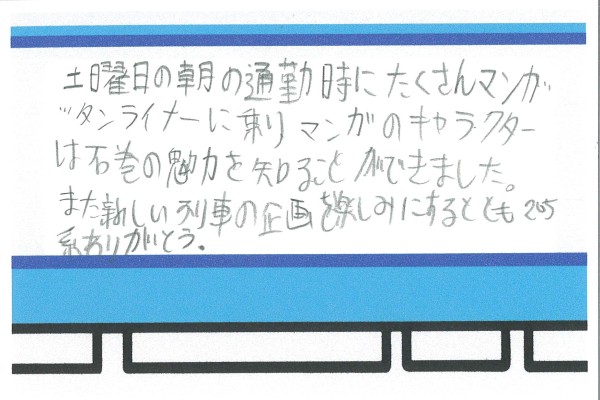 土曜日の朝の通勤時にたくさんマンガ
ッタンライナーに乗りマンガのキャラクター
は石巻の魅力を知ることができました。
また新しい列車の企画を楽しみにするととも205
系ありがとう。